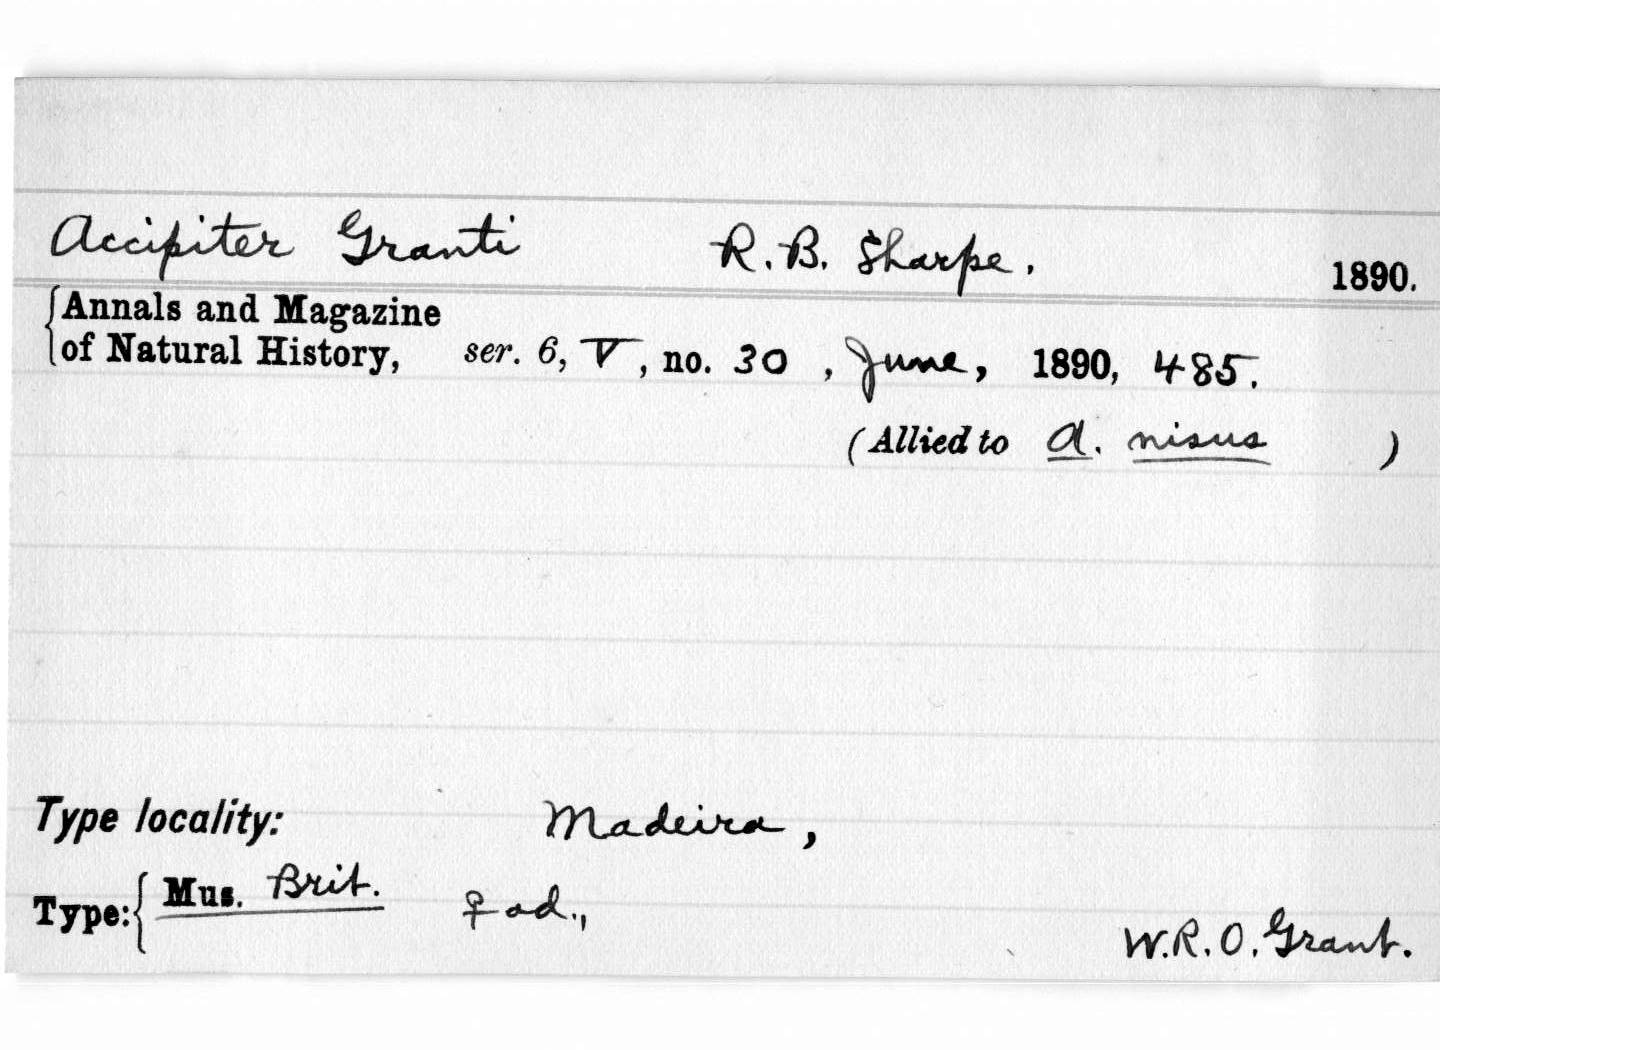 Accipiter Granti R. B. Sharpe. 1890.
Annals and Magazine
of Natural History, ser. 6, V, no. 30, June, 1890, 485.
(Allied to A. nisus )
Type locality: Madeira,
Type: Mus. Brit. ♀ ad.,
W. R. O. Grant.